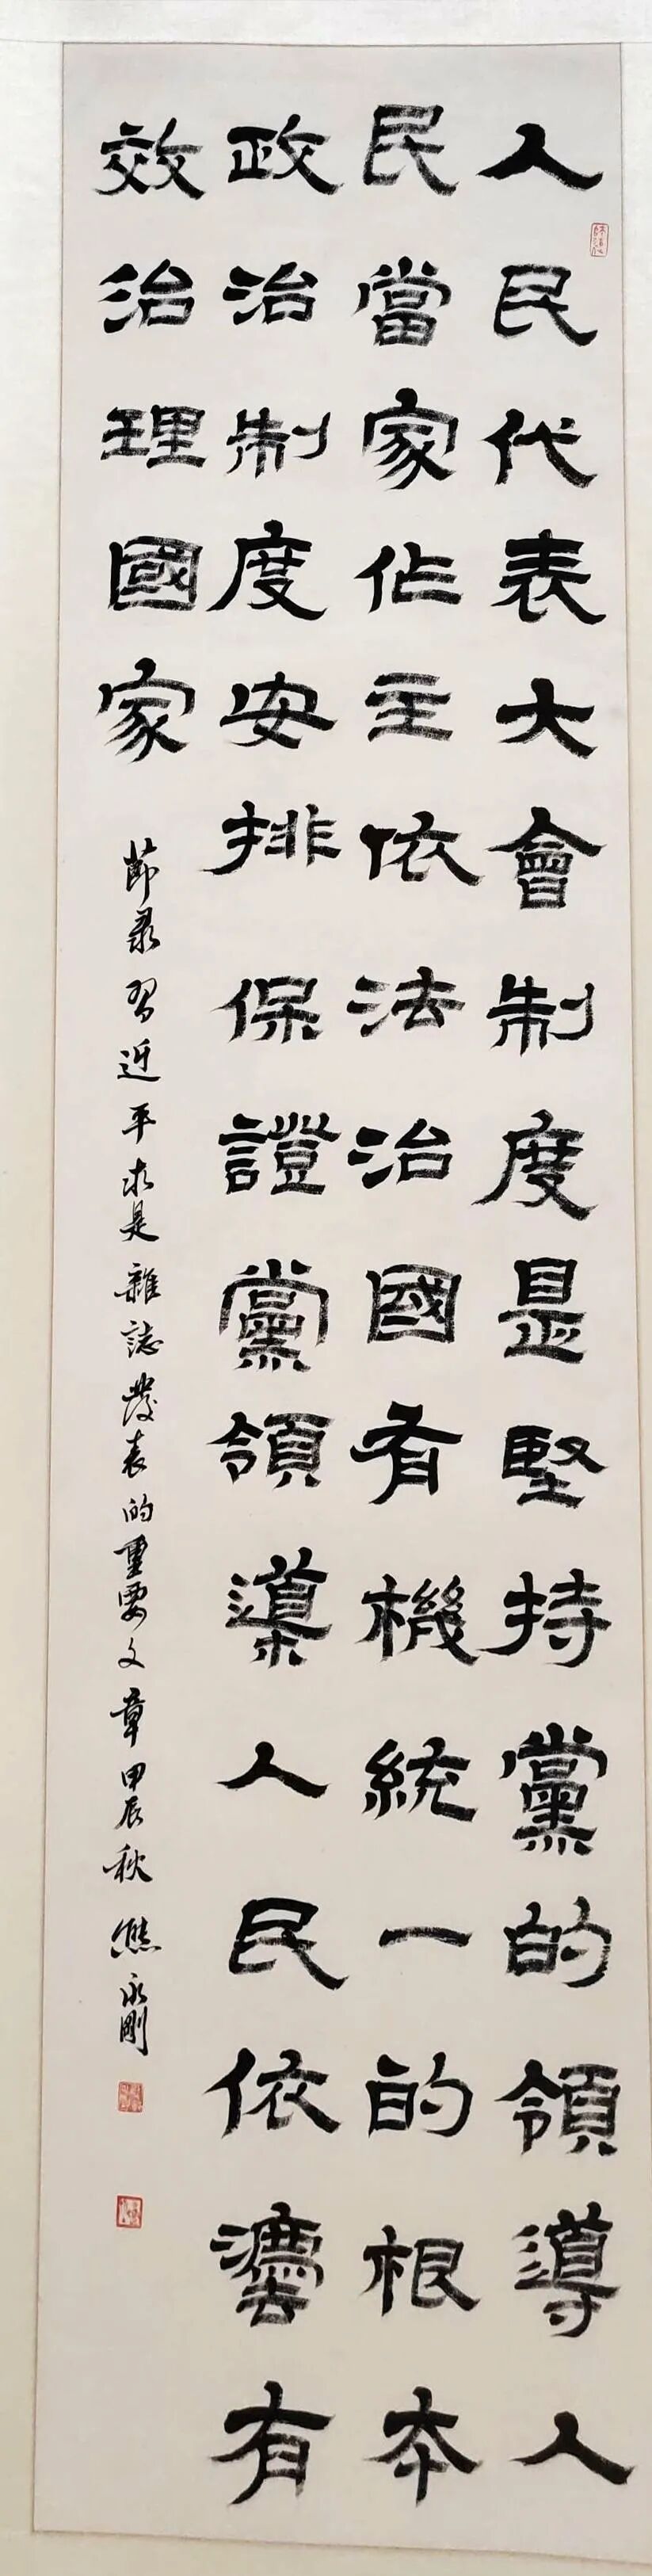 人民代表大會制度是堅持黨的領導人
民當家作主依法治國有機統一的根本
政治制度安排保證黨領導人民依灋有
效治理國家
節录習近平求是雜誌發表的重要文章甲辰秋熊永剛